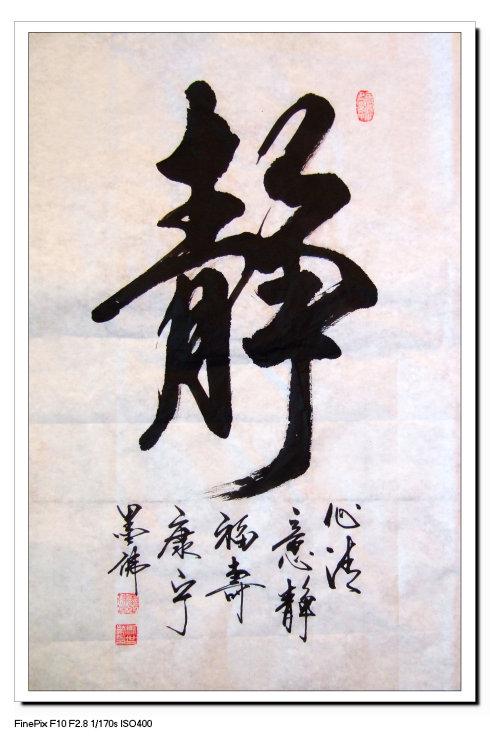 靜
心清
意静
福寿
康宁
墨佛
FinePix F10 F2.8 1/170s ISO400